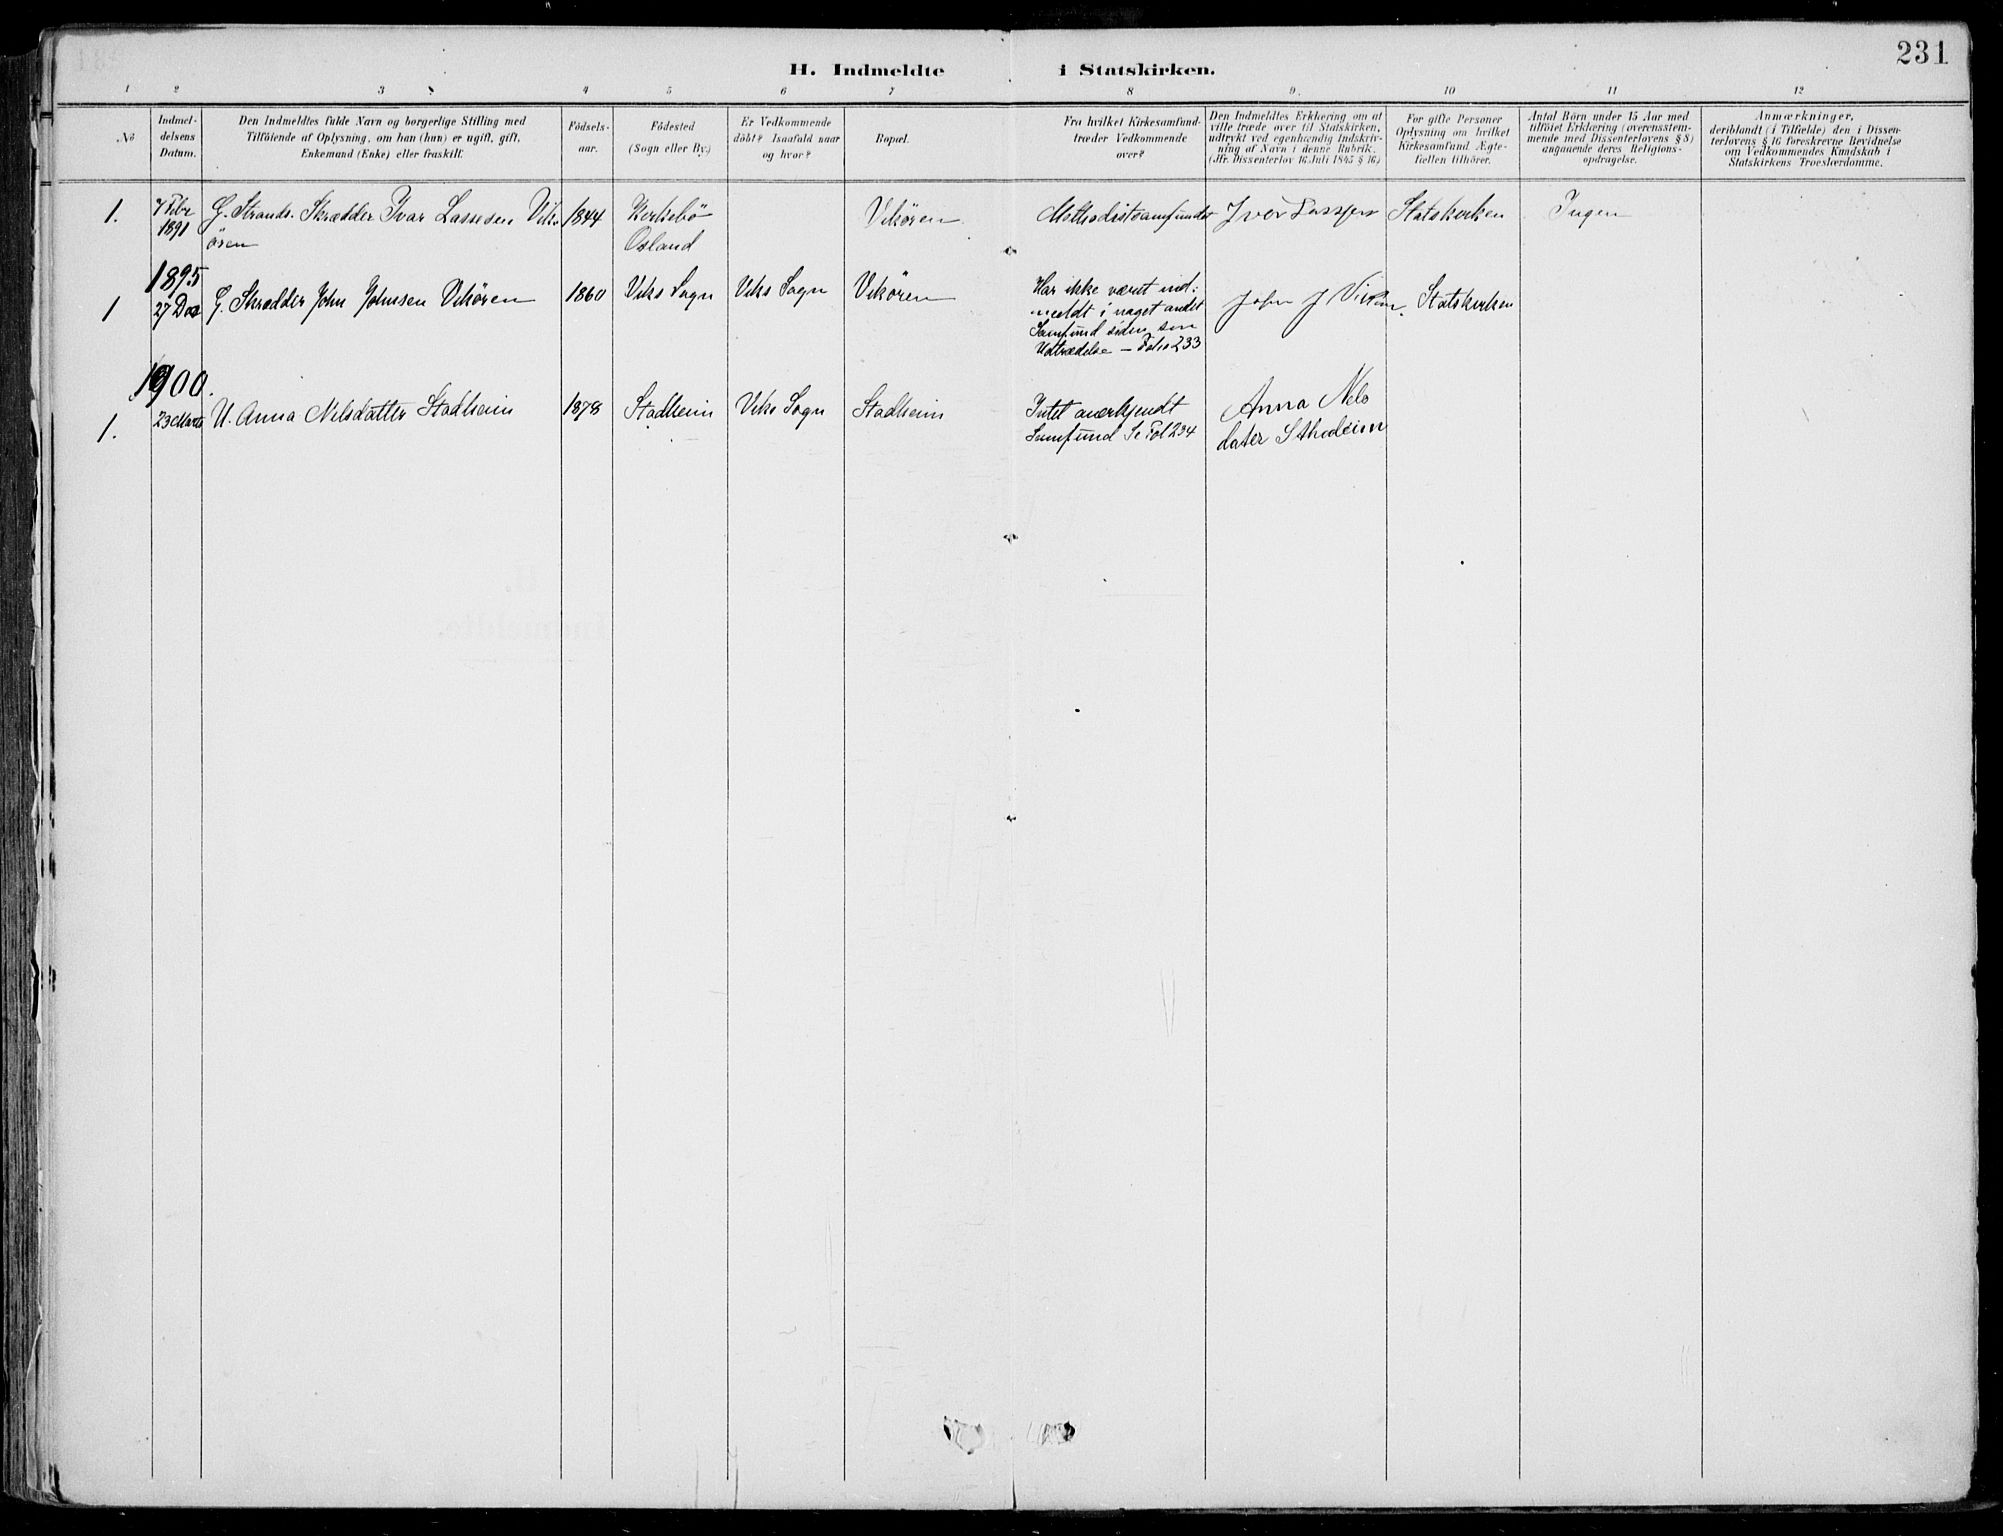 231
H. Indmeldte i Statskirken.
1 2 3 4 5 6 7 8 9. 10 11 12
No
Indmel-
delsens
Datum.
Den Indmeldtes fulde Navn og borgerlige Stilling med
Tilföiende af Oplysning, om han (hun) er ugift, gift,
Enkemand (Enke) eller fraskilt.
Födsels-
aar.
Födested
(Sogn eller By.)
Er Vedkommende
döbt? Isaafald naar
og hvor?
Bopæl.
Fra hvilket Kirkesamfund
træder Vedkommende
over?
Den Indmeldtes Erklæring om at
ville træde over til Statskirken,
udtrykt ved egenhændig Indskriv-
ning af Navn i denne Rubrik.
(Jfr. Dissenterlov 16 Juli 1845 § 16)
For gifte Personer
Oplysning om hvilket
Kirkesamfund Ægte-
fællen tilhörer.
Antal Börn under 15 Aar med
tilföiet Erklæring (overensstem-
mende med Dissenterlovens § 8)
angaaende deres Religions-
opdragelse.
Anmærkninger,
deriblandt (i Tilfælde) den i Dissen-
terlovens § 16 foreskrevne Bevidnelse
om Vedkommendes Kundskab i
Statskirkens Troeslærdomme.
1.
7 Febr
1891
G. Strands. Skrædder Ivar Lassesen Vik-
ören
1844
Kirkebö
Osland
Vikören
Methodistsamfundet
Iver Lassesen
Statskirken
Ingen
1895
1
27 Dec
G. Skrædder John Johnsen Vikören
1860
Viks Sogn
Viks Sogn
Vikören
Har ikke været ind-
meldt i noget andet
Samfund siden sin
Udtrædelse – Folio 233
John J Vikören
Statskirken
1900.
1.
23 Marts
U. Anna Nilsdatter Stadheim
1878
Stadheim
Viks Sogn
Stadheim
Intet anerkjendt
Samfund Se Fol 234
Anna Nels
dater Sthadeim